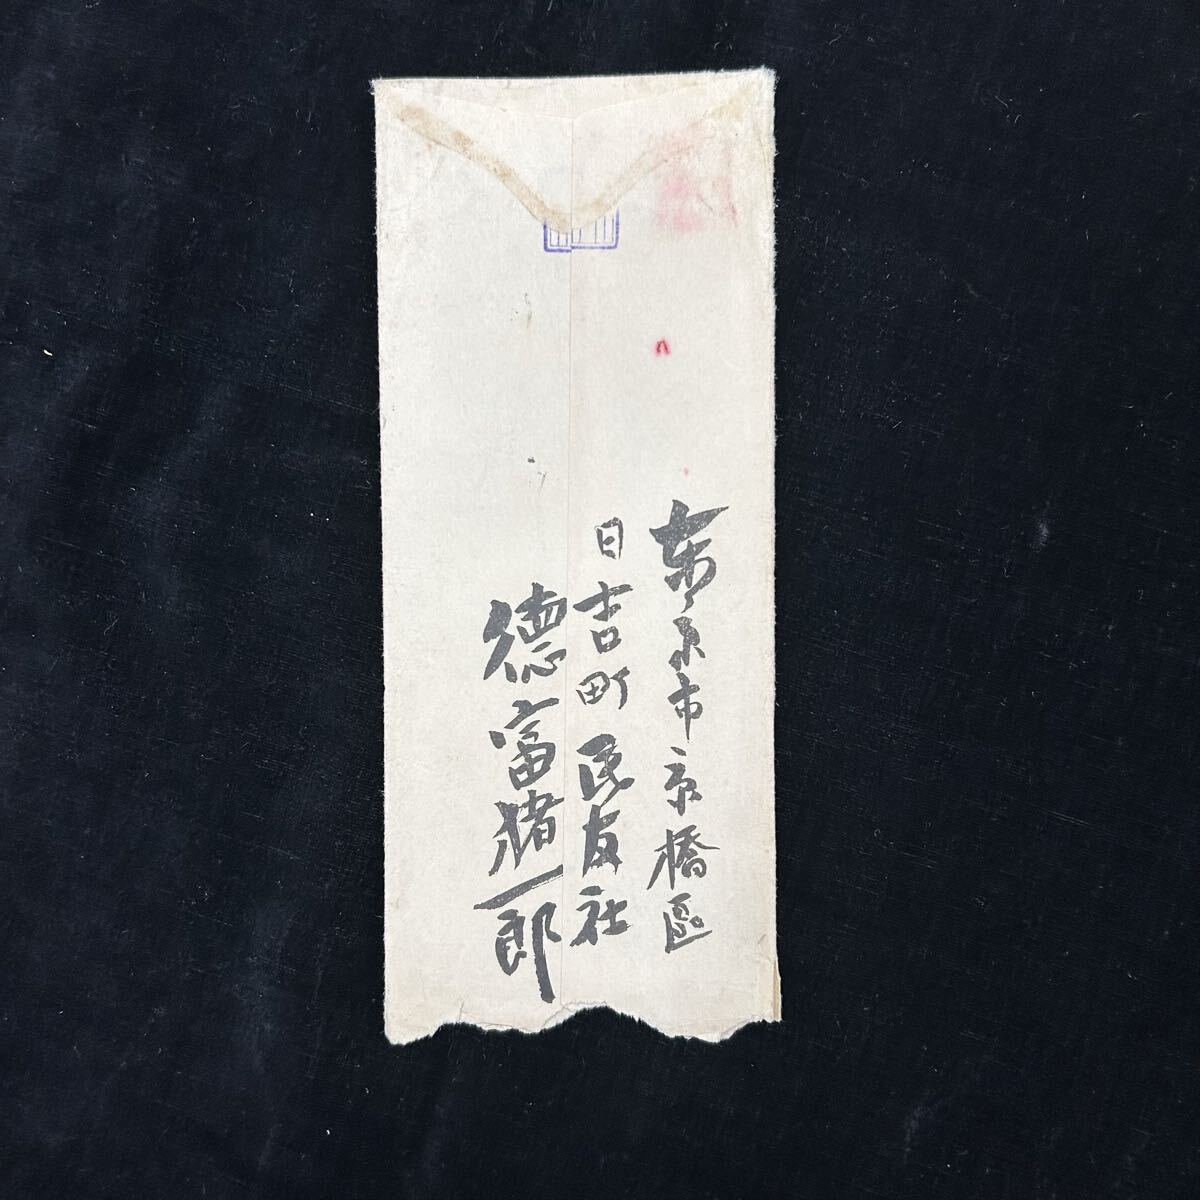 东京市京橋區
日吉町民友社
德富猪一郎